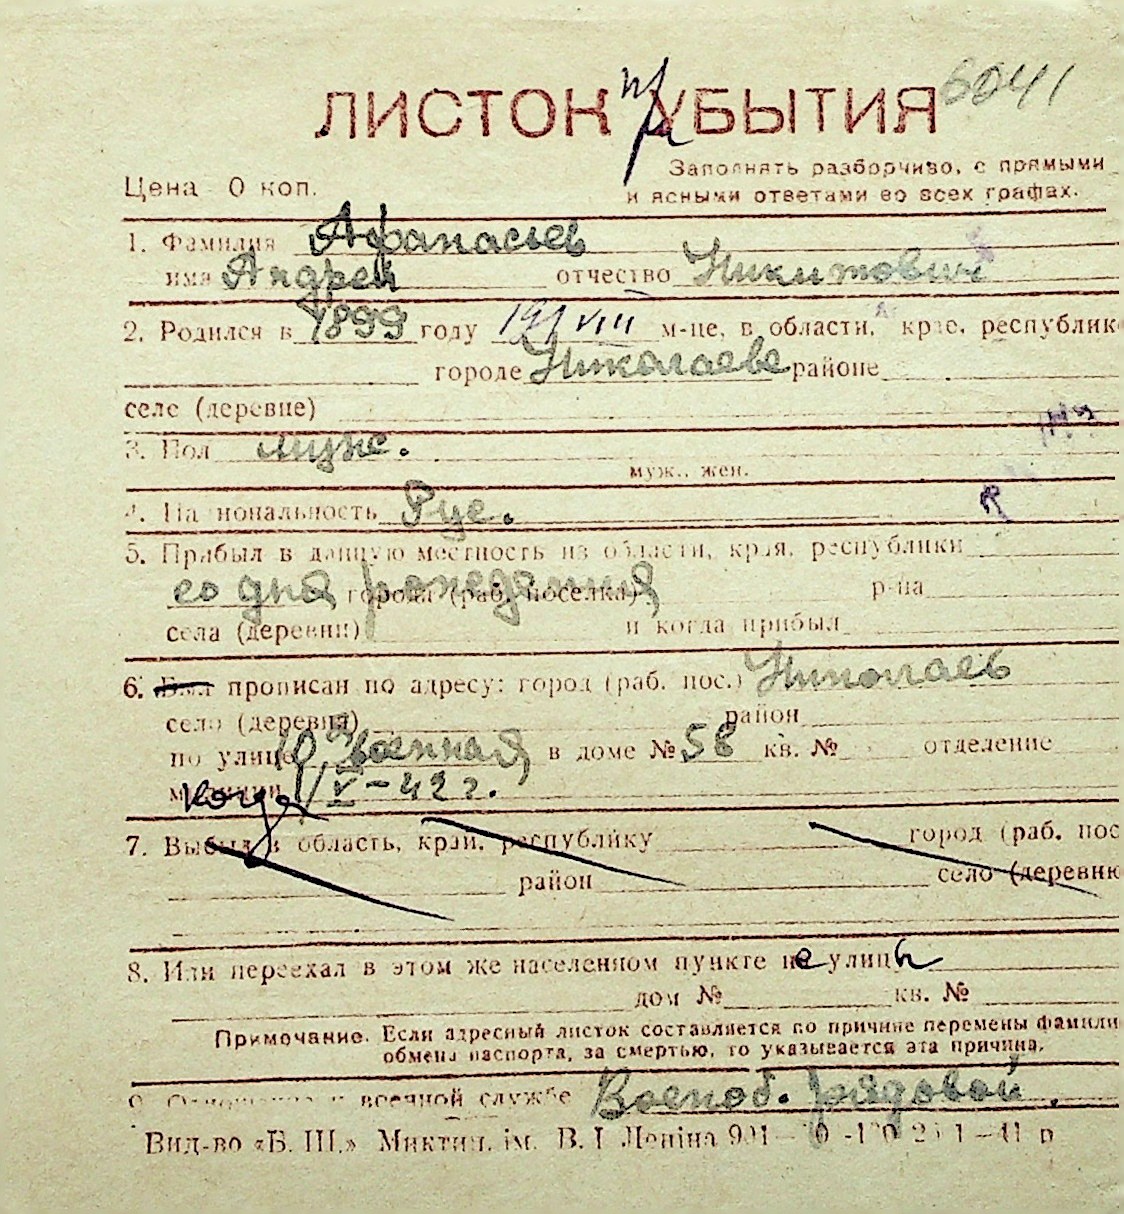 ЛИСТОК УБЫТИЯ
пр
6041
Цена 0 коп.
Заполнять разборчиво, с прямыми
и ясными ответами во всех графах.
1. Фамилия Афанасьев
имя Андрей отчество Никитович
2. Родился в 1899 году 19/VIII м-це, в области, крае, республик
городе Николаеве районе
селе (деревне)
3. Пол муж.
муж., жен.
4. Национальность Рус.
5. Прибыл в данную местность из области, края, республики
со дня рождения города (раб. поселка) р-на
села (деревни) и когда прибыл
6. Был прописан по адресу: город (раб. пос.) Николаев
село (деревня) район
по улице 10 Военная в доме № 58 кв. № отделение
милиции когда 1/V-42 г.
7. Выбыл в область, край, республику город (раб. пос
район село (деревню
8. Или переехал в этом же населенном пункте не улицы
дом № кв. №
Примечание. Если адресный листок составляется по причине перемены фамили
обмена паспорта, за смертью, то указывается эта причина.
9. Отношение к военной службе Военоб. рядовой.
Вид-во «Б. Ш.» Микт ім. В. І Леніна 901